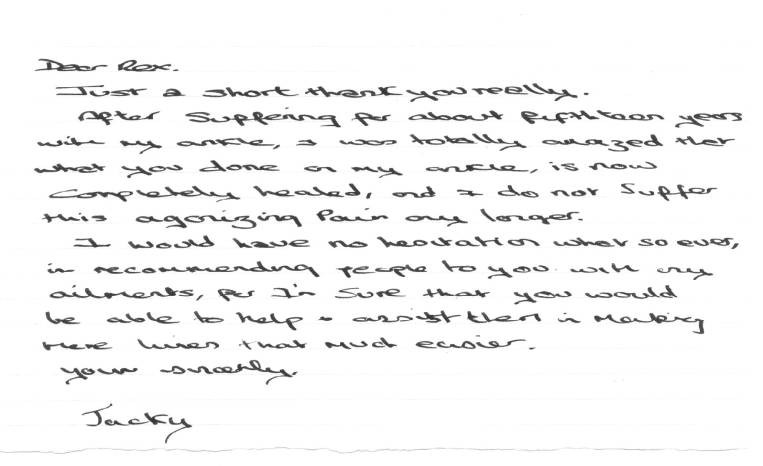 Dear Rex.
Just a short thank you really.
After Suffering for about fifthteen years
with my ankle, I was totally amazed that
what you done on my ankle, is now
completely healed, and I do not Suffer
this agonizing Pain any longer.
I would have no hesitation what so ever,
in recommending people to you with any
ailments, for I'm Sure that you would
be able to help + assist them in Making
there lives that Much easier.
yours sincerly.
Jacky